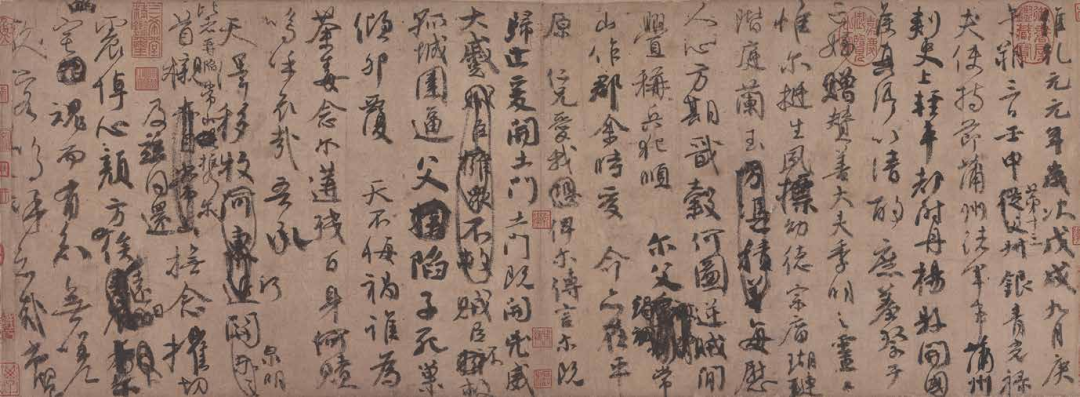 維乾元元年歲次戊戌九月庚
午朔三日壬申第十三從父叔銀青光祿
夫使持節蒲州諸軍事蒲州
刺史上輕車都尉丹楊縣開國
侯真卿以清酌庶羞祭于
亡姪贈贊善大夫季明之靈曰
惟爾挺生夙標幼德宗廟瑚璉
階庭蘭玉方憑積善每慰
人心方期戩穀何圖逆賊閒
釁稱兵犯順爾父竭誠常
山作郡余時受命亦在平
原仁兄愛我俾爾傳言爾既
歸止爰開土門土門既開凶威
大蹙賊臣擁眾不救賊臣不救
孤城圍逼父陷子死巢
傾卵覆天不悔禍誰為
荼毒念爾遘殘百身何贖
嗚呼哀哉吾承
天澤移牧河東近關泉明
比者再陷常山攜爾
首櫬及茲同還撫念摧切
震悼心顏方俟遠日
幽宅魂而有知無嗟
久客嗚呼哀哉尚饗